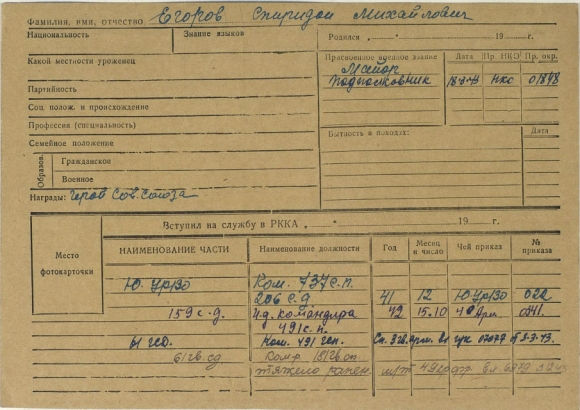 Фамилия, имя, отчество Егоров Спиридон Михайлович
Национальность Знание языков
Какой местности уроженец
Партийность
Соц. полож. и происхождение
Профессия (специальность)
Семейное положение
Образов. Гражданское
Военное
Награды: Герой Сов. Союза
Родился „ “ 19 г.
Присвоенное военное звание Дата Пр. НКО Пр. окр.
Майор
Подполковник НКО 01878
Бытность в походах: Дата
Вступил на службу в РККА „ “ 19 г.
Место фотокарточки
НАИМЕНОВАНИЕ ЧАСТИ Наименование должности Год Месяц и число Чей приказ № приказа
Ю. УрВО Ком. 737 с.п.
206 с.д. 41 12 Ю-УрВО 022
159 с.д. И.д. командира 42 15.10 Арм. 0341.
491 с.п.
Ком. 491 07079 3.3.43.
61 гв. сд 181 гв. сп
тяжело ранен.